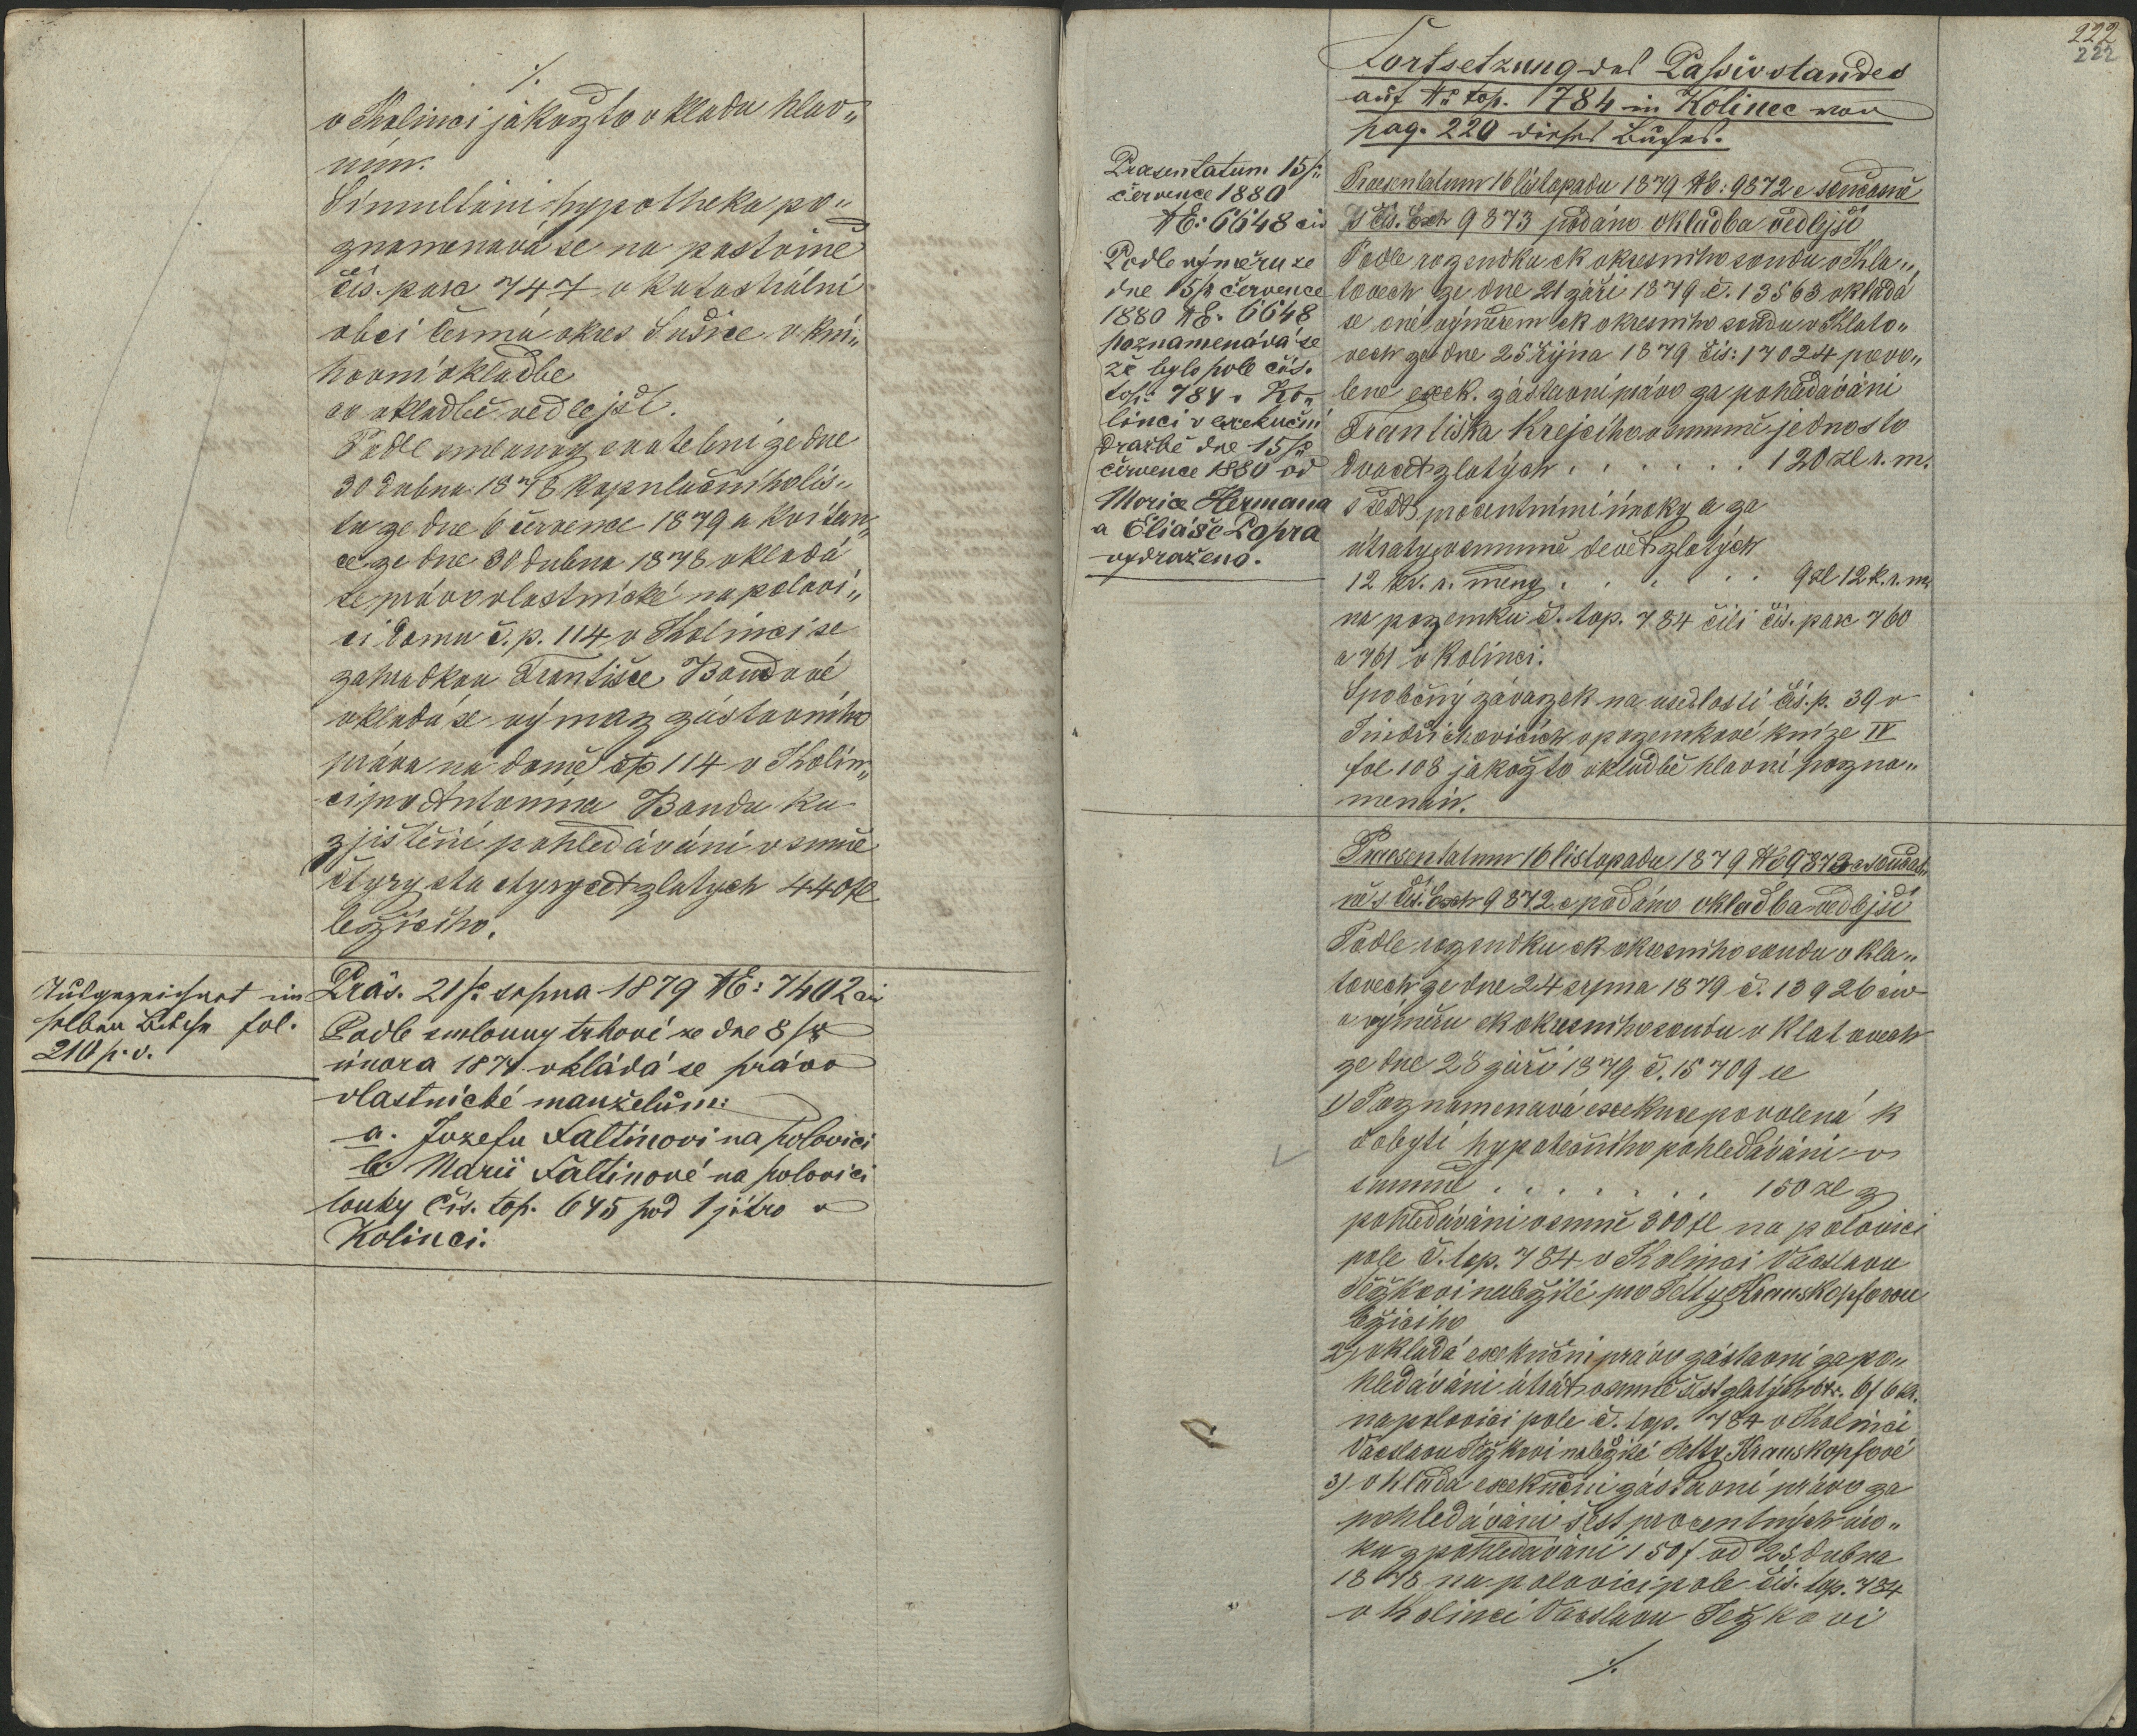 ./.
v Kolinci jakožto vkladu hlav„
ním.
Simultání hypotheka po„
znamenává se na pastvině
čís. parc 747 v katastrální
obci Čermá okres Sušice v kni„
hovní vkladbě
av vkladbě vedlejší.
Podle smlouvy svatební ze dne
30 dubna 1878 kopulačního lis„
tu ze dne 6 července 1879 a kvitan„
ce ze dne 30 dubna 1878 vkladá
se právo vlastnické na polovi„
ci domu č. p. 114 v Kolinci se
zahradkou Františce Baudové
vkladá se výmaz zástavního
práva na domě čp 114 v Kolin„
ci pro Antonína Baudu ku
zjištění pohledávání v sumě
čtyrysta čtyrycet zlatych 440 zl
ležícího.
fol.
210 p. v.
Präs. 21/8 srpna 1879 NE: 7402 civ
Podle smlouvy trhové ze dne 8/8
února 1874 vkládá se právo
vlastnické manželům:
a. Jozefu Faltínovi na polovici
b. Marii Faltinové na polovici
louky čís. top. 645 pod 1 jitro v
Kolinci.
222
222
Fortsetzung des Passivstandes
auf Nr top. 784 in Kolinec von
pag. 220 dieses Buches.
Praesentatum 15/7
července 1880
NE: 6648 civ
Podle výměru ze
dne 15/7 července
1880 NE. 6648
poznamenává se
že bylo pole čís.
top. 784 v Ko„
linci v exekuční
dražbě dne 15/7
července 1880 od
Morice Hermana
a Eliáše Popra
vydraženo.
Praesentatum 16 listopadu 1879 NE: 9872 c současně
s čís. Exh 9873 podáno vkladba vedlejší
Podle rozsudku ck okresního soudu v Kla„
tovech ze dne 21 září 1879 č. 13563 vkládá
se ono výměrem ck okresního soudu v Klato„
vech ze dne 25 října 1879 čís: 17024 povo„
lené exek. zástavní právo za pohledávání
Františka Krejcího v summě jednosto
dvacet zlatých . . . . . . 120 zl r. m.
s šesti procentními úroky a za
útraty v summě devět zlatých
12 kr. r. měny . . . . . . 9 zl 12 k. r. m.
na pozemku č. top. 784 čili čís. parc 760
a 761 v Kolinci.
Společný závazek na usedlosti čís. p. 39 v
Jindřichovicích v pozemkové knize IV
fol 108 jakožto vkladbě hlavní pozna„
menán.
Praesentatum 16 listopadu 1879 NE 9873 c součas
ně s čís. Exh 9872 c podáno vkladba vedlejší
Podle rozsudku ck okresního soudu v Kla„
tovech ze dne 24 srpna 1879 č. 13926 civ
a výměru ck okresního soudu v Klatovech
ze dne 28 září 1879 č. 15709 se
1) Poznamenává exekuce povolená k
dobytí hypotečního pohledávání v
summě . . . . . . . 150 zl z
pohledávání v sumě 300 zl na polovici
pole č. top. 784 v Kolinci Vácslavu
Ježkovi náležité pro Jetty Krauskopfovou
ležícího
2) vkladá exekuční právo zástavní za po„
hledávání útrat v sumě šest zlatých 6 kr. 6 f 6 kr.
na polovici pole č. top. 784 v Kolinci
Vacslavu Ježkovi náležité Jetty Krauskopfové
3) vkladá exekuční zástavní právo za
pohledávání šest procentních úro„
ku z pohledávání 150 f od 25 dubna
1878 na polovici pole čís. top. 784
v Kolinci Vácslavu Ježkovi
./.